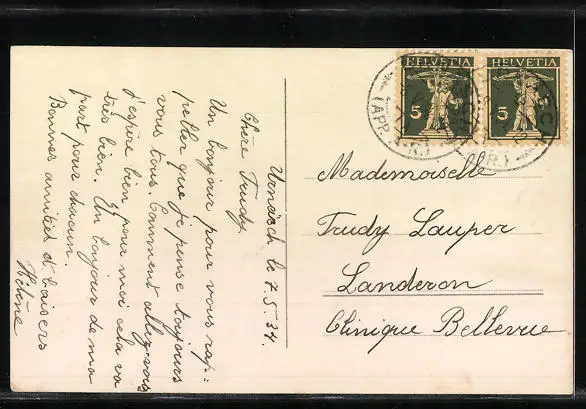 Urnäsch le 7.5.34.
Chère Trudy
Un bonjour pour vous rap:
peller que je pense toujours
vous tous. Comment allez-vous
j'espère bien, pour moi cela va
très bien. Un bonjour de ma
part pour chacun.
Bonnes amitiés et baisers
Hélène
HELVETIA
5
HELVETIA
5
(APP. A.-R.)
R.)
Mademoiselle
Trudy Lauper
Landeron
Clinique Bellevue